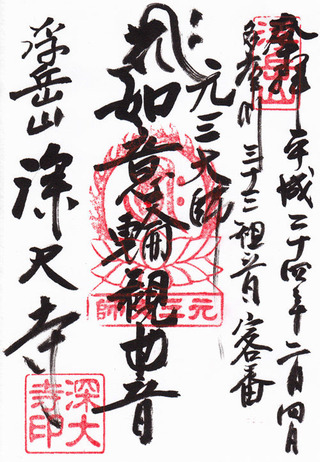 奉拝 平成二十四年二月四日
多摩川 三十三観音 客番
元三大師
如意輪観世音
浮岳山 深大寺
浮岳山
元三大師
深大
寺印